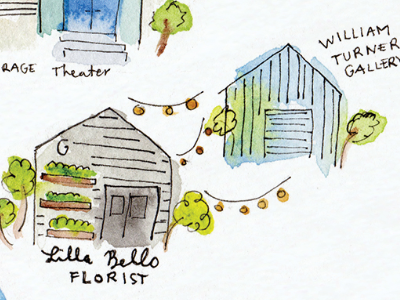 RAGE Theater
WILLIAM
TURNER
GALLERY
G
Lilla Bello
FLORIST